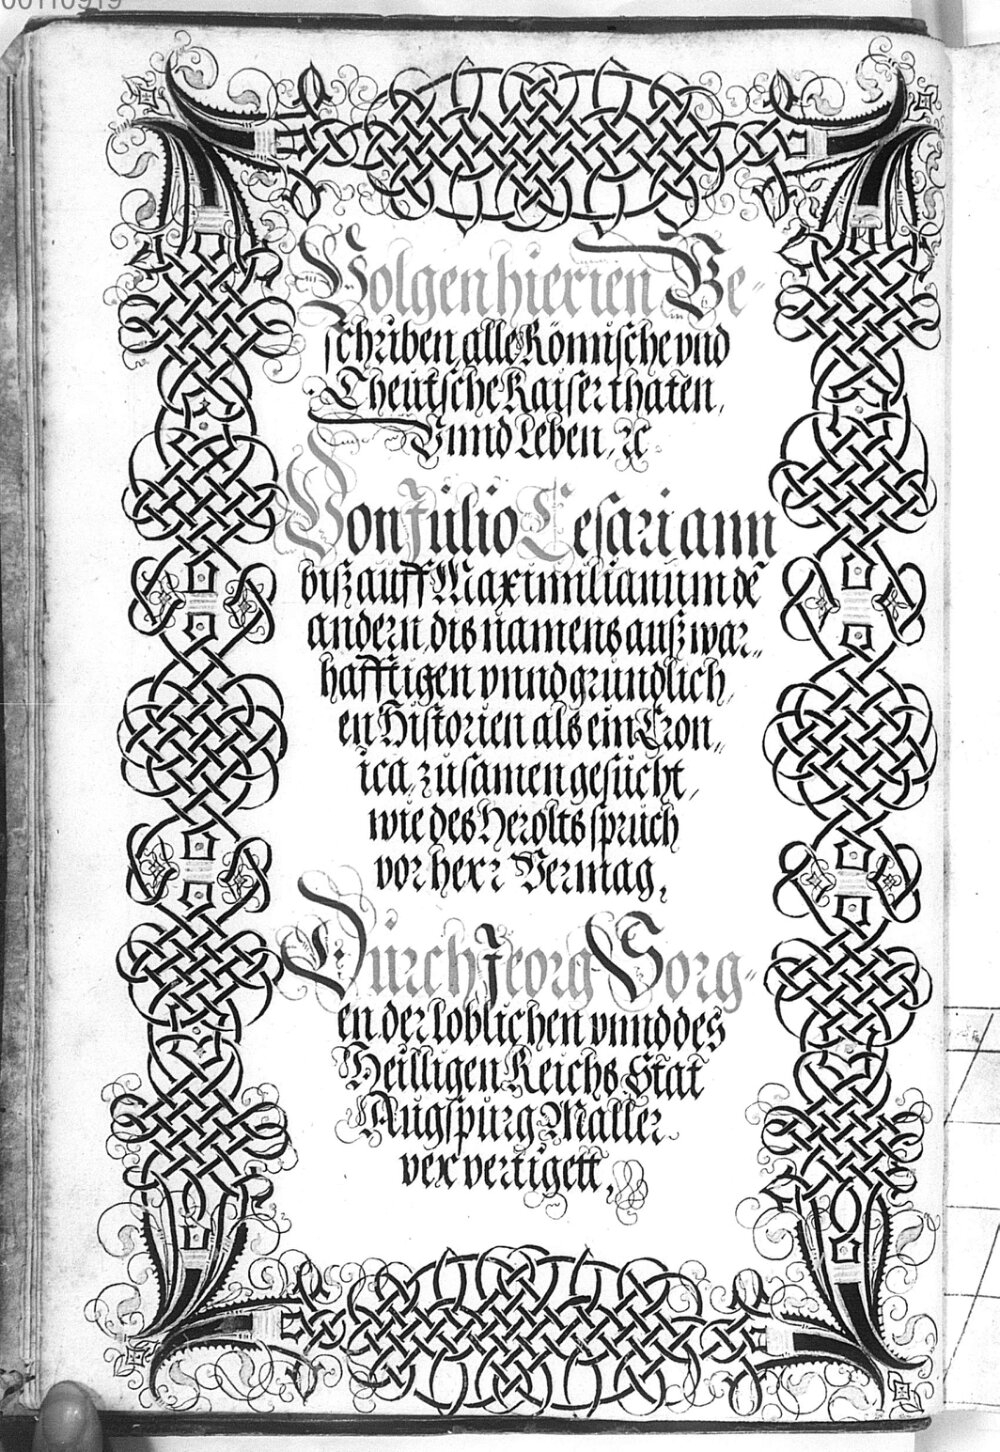 00110919
Volgen hierien Be-
schriben alle Römische vnd
Theütsche Kaiser thaten,
Vnnd Leben, ꝛc.
Von Julio Cesari ann
biß auff Maximilianum de᷉
andern, dis namens auß war„
hafftigen vnnd gründlich,
en Historien als ein Cron„
ica, zusamen gesücht,
wie des Herolts sprüch
vor herr Vermag,
Dürch Jeorg Sorg-
en der loblichen vnnd des
Heilligen Reichs Stat
Augspürg Maller
ver vertigett,